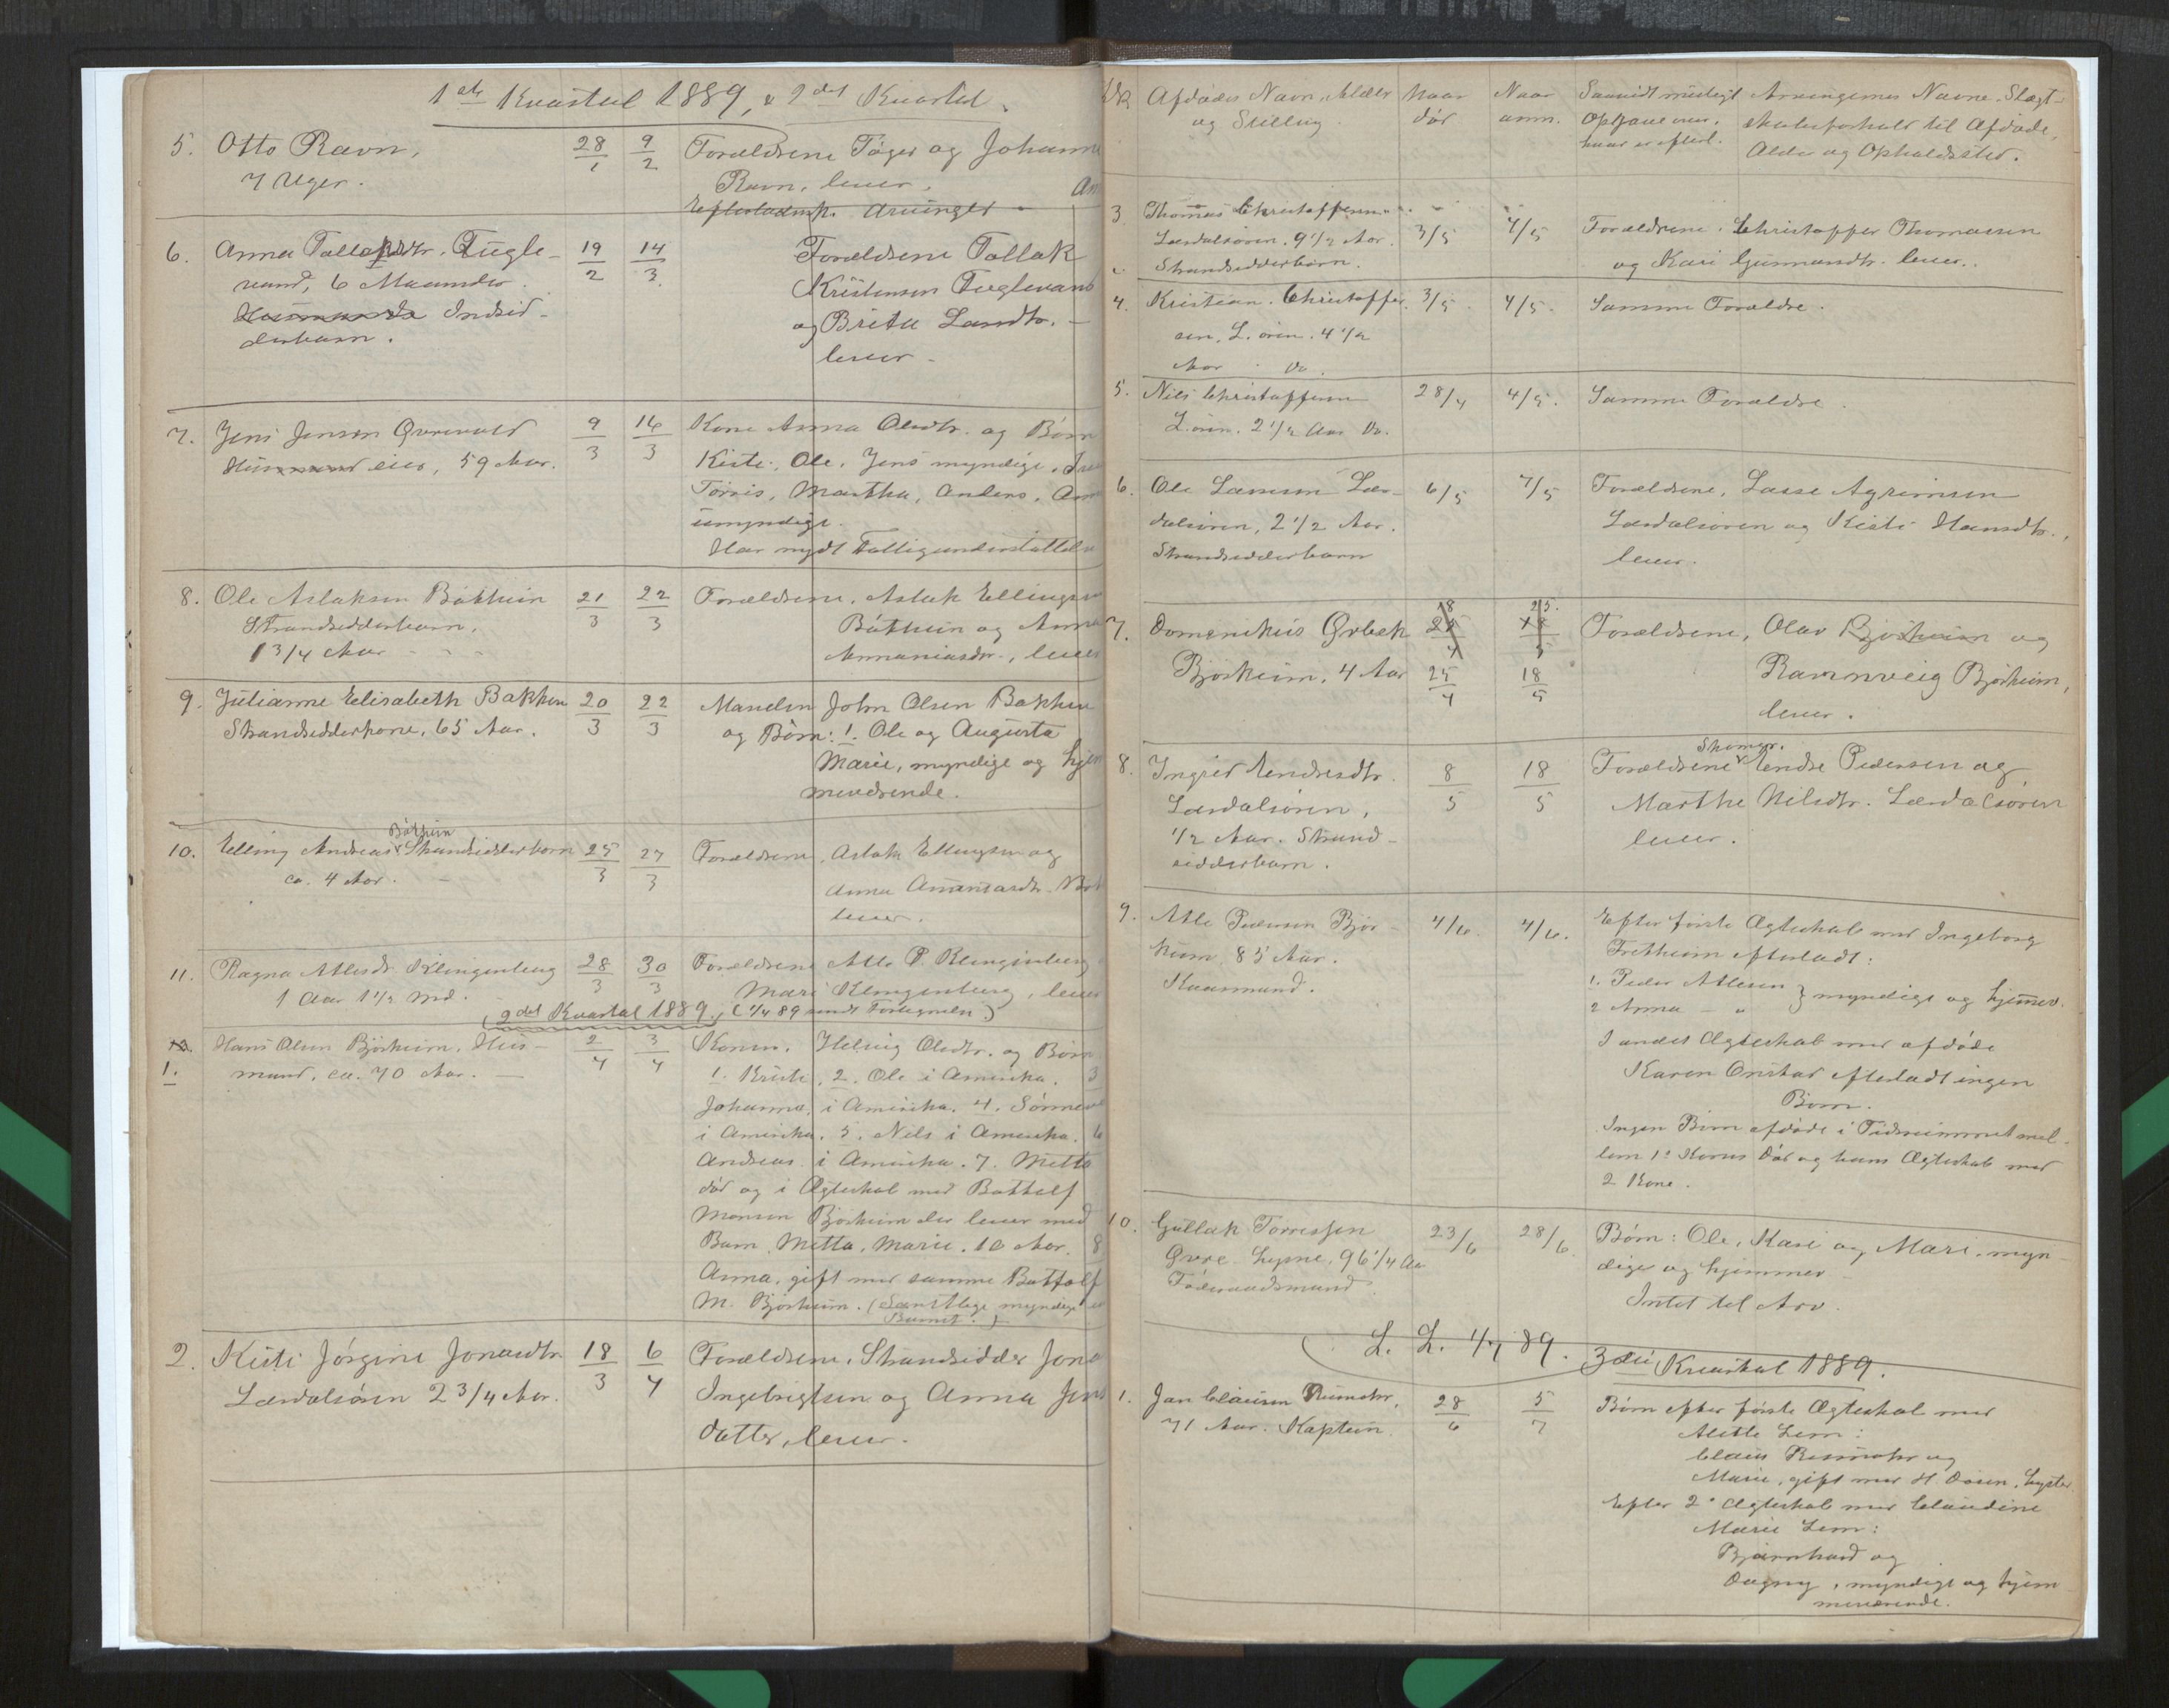 1ste Kvartal 1889, & 2det Kvartal.
5. Otto Ravn, 28/1 9/2 Forældrene Tøger og Johanne
7 Uger. Ravn, lever.
Efterladensk. Arvinger
6. Anna Tollaksdtr. Fugle- 19/2 14/3 Forældrene Tollak
vand, 6 Maaneder. Kristensen Fuglevand
Huusmands Indsid- og Brita Larsdtr.
derbarn. lever.
7. Jens Jensen Øvrevold 9/3 16/3 Kone Anna Olsdtr. og Børn
Husmand eier, 59 Aar. Kiste, Ole, Jens myndige,
Torris, Martha, Anders,
umyndige.
Har nydt Fattigunderstøttelse
8. Ole Aslaksen Bøthun 21/3 22/3 Forældrene, Aslak Ellingsen
Strandsidderbarn, Bøthun og Anna
1 3/4 Aar Annaniasdtr., lever
9. Julianne Elisabeth Bakken 20/3 22/3 Manden John Olsen Bakken
Strandsidderkone, 65 Aar. og Børn: 1. Ole og Augusta
Marie, myndige og hjem
meværende.
10. Elling Andreas Bøthun Strandsidderbarn 25/3 27/3 Forældrene, Aslak Ellingsen og
ca. 4 Aar. Anna Ananiasdtr.
lever.
11. Ragna Atlesdtr. Klingenberg 28/3 30/3 Forældrene Atle P. Klingenberg
1 Aar 1 1/2 Md. Mari Klingenberg, lever
(2det Kvartal 1889.) (1/4 89 sendt Fortegnelse)
1. Hans Olsen Bjørkum, Hus- 2/4 3/4 Konen, Helvig Olsdtr. og Børn
mand, ca. 70 Aar. 1. Kristi, 2. Ole i Amerika. 3
Johanna, i Amerika. 4. Sønneva
i Amerika. 5. Nils i Amerika. 6
Andreas i Amerika. 7. Metta
død og i Ægteskab med Bottolf
Monsen Bjørkum der lever med
Barn, Metta, Marie. 10 Aar. 8
Anna, gift med samme Bottolf
M. Bjørkum. (Samtlige myndige
Barnet.)
2. Kisti Jørgine Jonasdtr. 18/3 6/4 Forældrene, Strandsidder Jona
Lærdalsøren 2 3/4 Aar. Ingebrigtsen og Anna Jens
datter, lever.
Afdødes Navn, Alder Naar Naar Saavidt muligt Arvingernes Navne, Slægt-
og Stilling død anm. Opgave om, skabsforhold til Afdøde,
hvad er efterl. Alder og Opholdssted.
3 Thomas Christoffersen
Lærdalsøren. 9 1/2 Aar. 3/5 4/5 Forældrene. Christoffer Thomassen
Strandsidderbarn. og Kari Gunnarsdtr. lever.
4. Kristian Christoffer- 3/5 4/5 Samme Forældre.
sen, L.øren. 4 1/2
Aar Do.
5. Nils Christoffersen 28/4 4/5. Samme Forældre.
L.øren. 2 1/2 Aar Do.
6. Ole Larssen Lær- 6/5 7/5 Forældrene, Lasse Agrimsen
dalsøren, 2 1/2 Aar. Lærdalsøren og Kisti Hansdtr.,
Strandsidderbarn lever.
7. Domenikus Ørbek Forældrene, Olav Bjørkum og
Bjørkum, 4 Aar 25/4 18/5 Rannveig Bjørkum,
lever.
8. Ingrid Endresdtr. 8/5 18/5 Forældrene Skomgr. Endre Pedersen og
Lærdalsøren, Marthe Nilsdtr. Lærdalsøren
1/2 Aar. Strand- lever.
sidderbarn.
9. Atle Pedersen Bjør- 4/6 4/6. Efter første Ægteskab med Ingeborg
kum 85 Aar. Fretheim efterladt:
Kaarmand. 1. Peder Atlesen } myndige og hjemmev.
2 Anna - "
I andet Ægteskab med afdøde
Karen Onstad efterladt ingen
Børn.
Ingen Børn afdøde i Tidsrummet mel-
lem 1ste Kones Død og hans Ægteskab med
2 Kone.
10. Gullak Torressen 23/6 28/6. Børn: Ole, Kari og Mari, myn-
Øvre Lysne, 96 1/4 Aar dige og hjemmev
Føderaadsmand. Intet til Arv.
L. L. 1/7 89.
3die Kvartal 1889.
1. Jan Clausen Rumohr, 28/6 5/7 Børn efter første Ægteskab med
71 Aar. Kaptein. Alette Lem:
Claus Rumohr og
Marie, gift med H. Døsen, Lyster.
Efter 2det Ægteskab med Claudine
Marie Lem:
Bjarnhard og
Dagny, myndige og hjem
meværende.